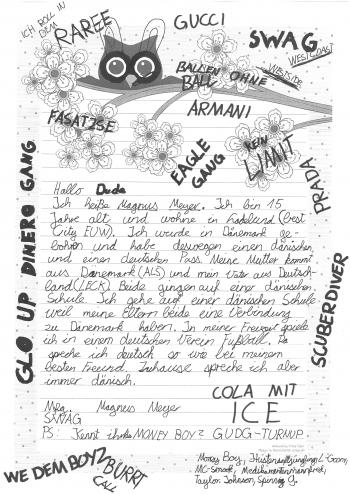 ICH ROLL IN
DEM
RAREE
GUCCI
SWAG
WESTCOAST
WESTSIDE
BALLEN
BALL
OHNE
ARMANI
FASATZSE
EAGLE
GANG
KEIN
LIMIT
PRADA
GLO UP DINERO GANG
SCUBERDIVER
Hallo Dude
Ich heiße Magnus Meyer. Ich bin 15
Jahre alt und wohne in Ladelund (best
City EUW). Ich wurde in Dänemark ge-
bohren und habe deswegen einen dänischen
und einen deutschen Pass. Meine Mutter kommt
aus Dänemark (ALS) und mein Vater aus Deutsch-
land (LECK). Beide gingen auf einer dänischen
Schule. Ich gehe auf einer dänischen Schule
weil meine Eltern beide eine Verbindung
zu Dänemark haben. In meiner Freizeit spiele
ich in einem deutschen Verein Fußball. Da
spreche ich deutsch so wie bei meinem
besten Freund. Zuhause spreche ich aber
immer dänisch.
COLA MIT
ICE
Magnus Meyer
SWAG
PS: Kennt ihr MONEY BOYZ GUDG-TURNUP
WE DEM BOYZ
BÜRRT
CALL
Money Boy, Hustensaftjüngling, L-Goony,
MC-Smook, Medikamentenmanfred,
Taylor Johnson, Spinning 9.